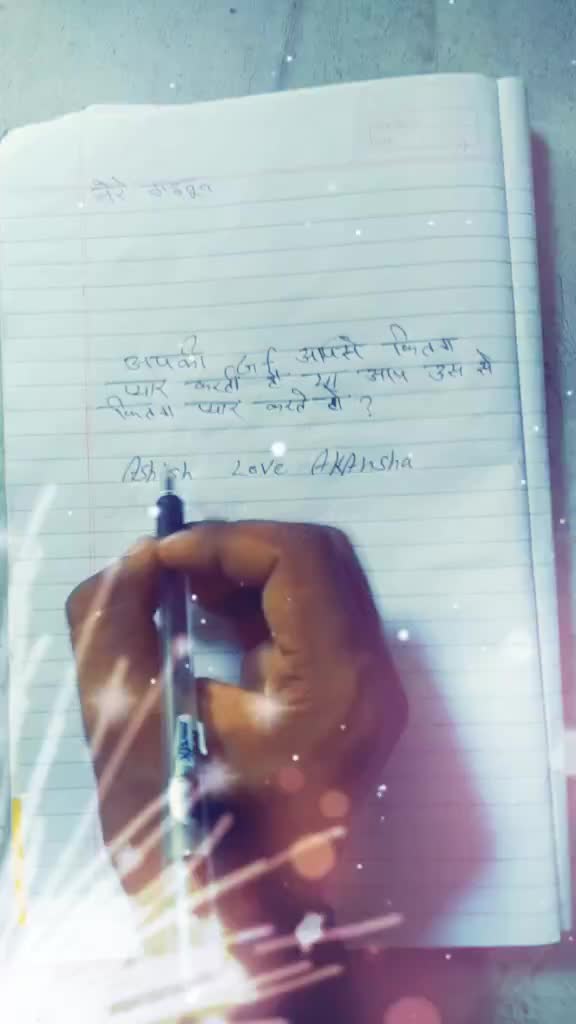 आपकी GF आपसे कितना
प्यार करती है या आप उस से
कितना प्यार करते हो ?
Ashish Love AKAnsha